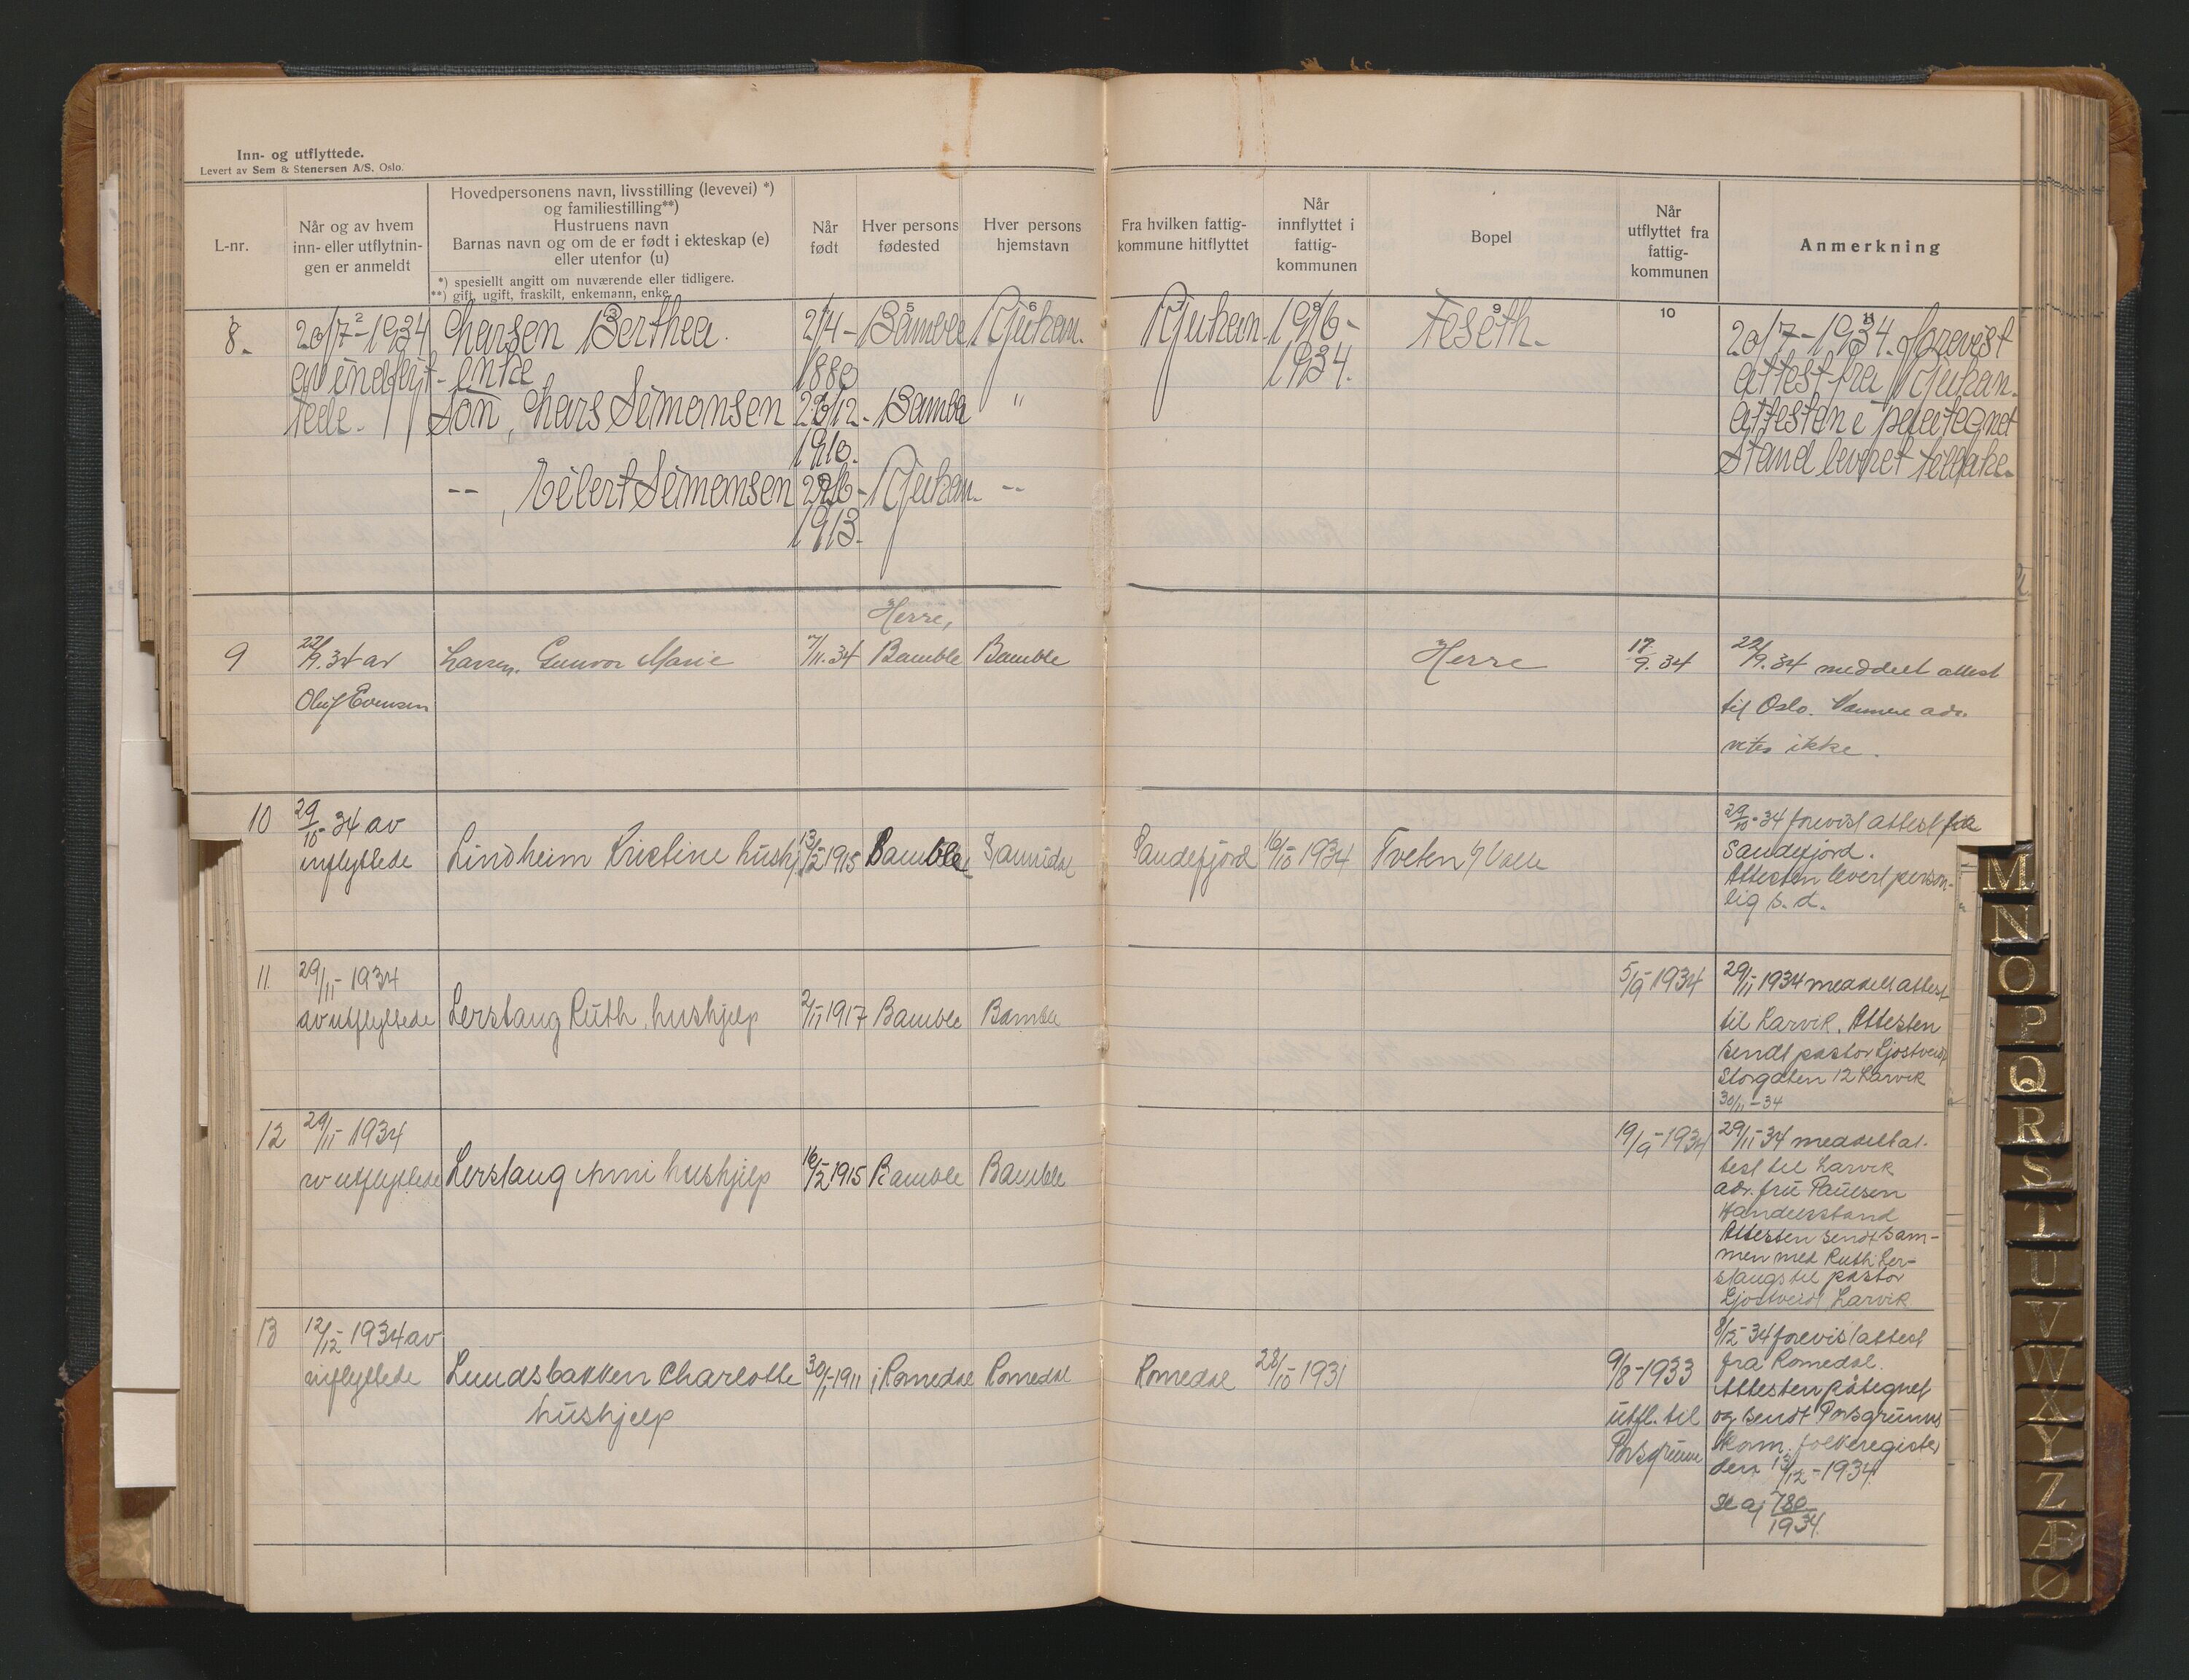 Inn- og utflyttede.
Levert av Sem & Stenersen A/S, Oslo.
L-nr.
Når og av hvem
inn- eller utflytnin-
gen er anmeldt
Hovedpersonens navn, livsstilling (levevei) *)
og familiestilling**)
Hustruens navn
Barnas navn og om de er født i ekteskap (e)
eller utenfor (u)
*) spesielt angitt om nuværende eller tidligere.
**) gift, ugift, fraskilt, enkemann, enke.
Når
født
Hver persons
fødested
Hver persons
hjemstavn
Fra hvilken fattig-
kommune hitflyttet
Når
innflyttet i
fattig-
kommunen
Bopel
Når
utflyttet fra
fattig-
kommunen
Anmerkning
1 2 3 5 6 8 9 10 11
8. 20/7-1934 Larsen Berthea. 2/4- Bamble Rjukan. Rjukan 19/6- 20/7-1934. forevist
av indflyt- enke 1880 1934. attest fra Rjukan.
tede. Søn, Lars Simonsen Bamble "
1910.
-- , Eilert Simonsen Rjukan. --
1913.
Herre,
9 22/9.34 av Larsen, Gunvor Marie 7/11.34 Bamble Bamble Herre 17/9.34 22/9.34 meddelt attest
Oluf Evensen til Oslo. adr.
vites ikke.
10 29/10-34 av 29/10-34 forevist attest fra
innflyttede Lindheim Kristine hushj. 13/12 1915 Bamble Sannidal Sandefjord 16/10 1934 Tveten Sandefjord.
Attesten levert person-
lig s. d.
11 29/11-1934 5/9-1934 29/11 1934 meddelt attest
av utflyttede Lerstang Ruth, hushjelp 2/11 1917 Bamble Bamble til Larvik. Attesten
sendt pastor
Storgaten 12 Larvik
30/11-34
12 29/11-1934 19/9-1934 29/11-34 meddelt at-
av utflyttede Lerstang Anni hushjelp 16/12 1915 Bamble Bamble test til Larvik
adr. fru Paulsen
Handelsstand
Attesten sendt sam-
men med Ruth Ler-
stangs til pastor
Larvik
13 12/12-1934 av 8/12-34 forevist attest
innflyttede Lundsbakken Charlotte 30/1-1911 i Romedal Romedal Romedal 28/10 1931 9/8-1933 fra Romedal.
hushjelp utfl. til Attesten påtegnet
Porsgrunn og sendt Porsgrunns
kom. folkeregister
den 13/12-1934.
780/1934.
M
N
O
P
Q
R
S
T
U
V
W
X
Y
Z
Æ
Ø